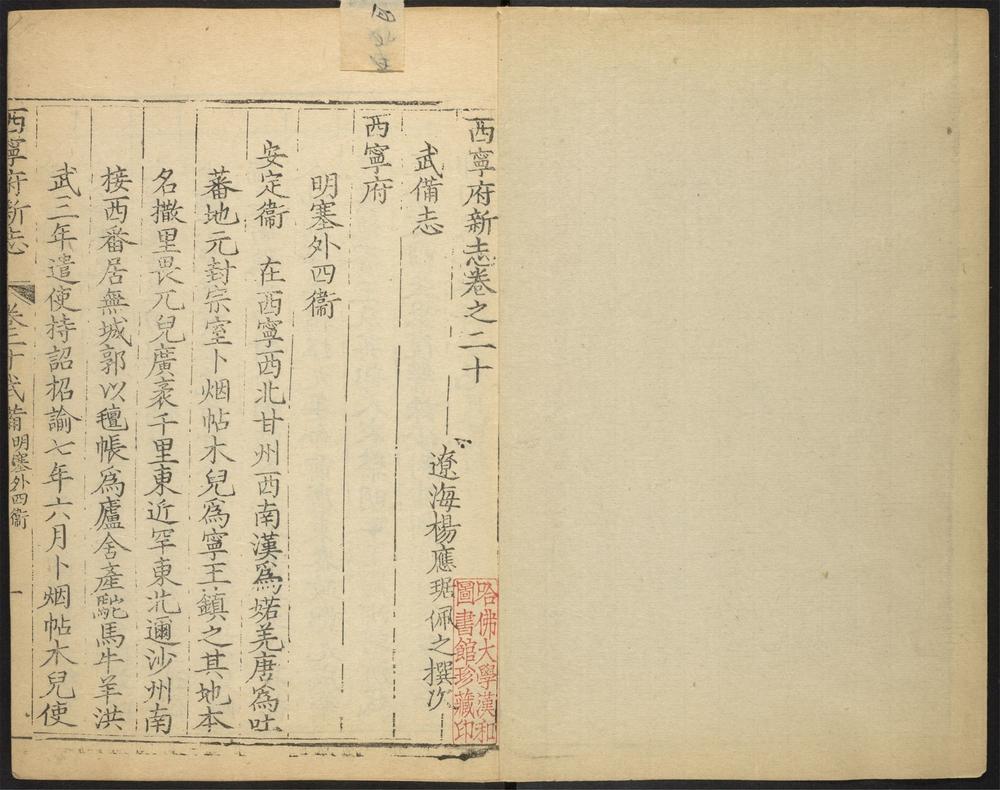 西寧府新志卷之二十
武備志
遼海楊應琚佩之撰次
西寧府
明塞外四衞
安定衞 在西寧西北甘州西南漢爲婼羌唐爲吐
蕃地元封宗室卜烟帖木兒爲寧王鎮之其地本
名撒里畏兀兒廣袤千里東近罕東北邇沙州南
接西番居無城郭以氊帳爲廬舍產駞馬牛羊洪
武三年遣使持詔招諭七年六月卜烟帖木兒使
西寧府新志
卷二十武備
明塞外四衞
一
哈佛大學漢和
圖書館珍藏印